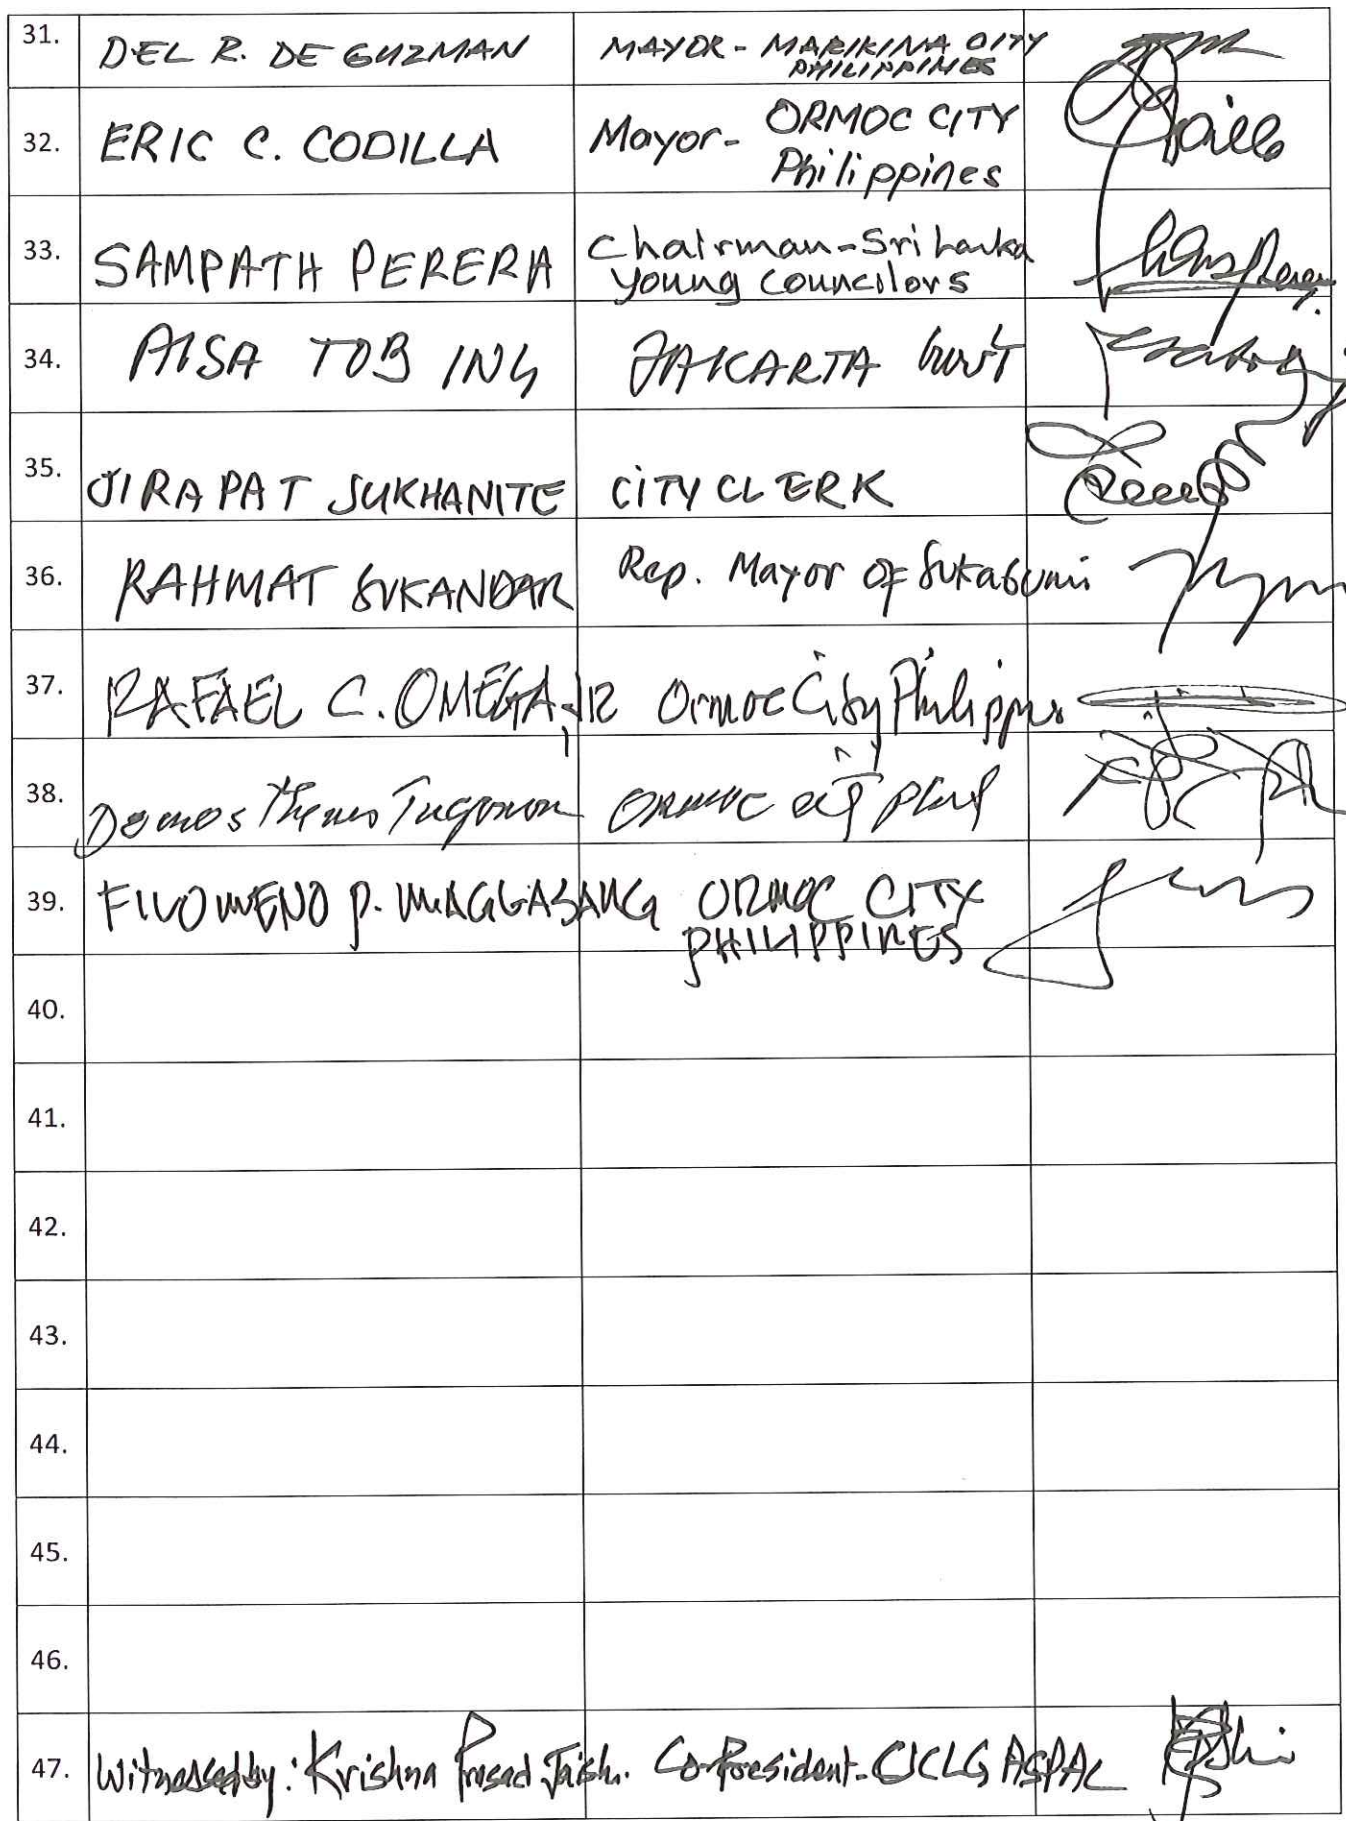 31. DEL R. DE GUZMAN MAYOR - MARIKINA CITY
PHILIPPINES
32. ERIC C. CODILLA Mayor- ORMOC CITY
Philippines
33. SAMPATH PERERA Chairman-Sri Lanka
Young Councilors
34. AISA TOBING JAKARTA Gov't
35. JIRAPAT SUKHANITE CITY CLERK
36. RAHMAT SUKANDAR Rep. Mayor OF Sukabumi
37. RAFAEL C. OMEGA, JR Ormoc City Philippines
38. ORMOC city
39. FILOMENO P. MAGGASANG ORMOC CITY
PHILIPPINES
40.
41.
42.
43.
44.
45.
46.
47. Witnessed by: Krishna Prasad Co-President-